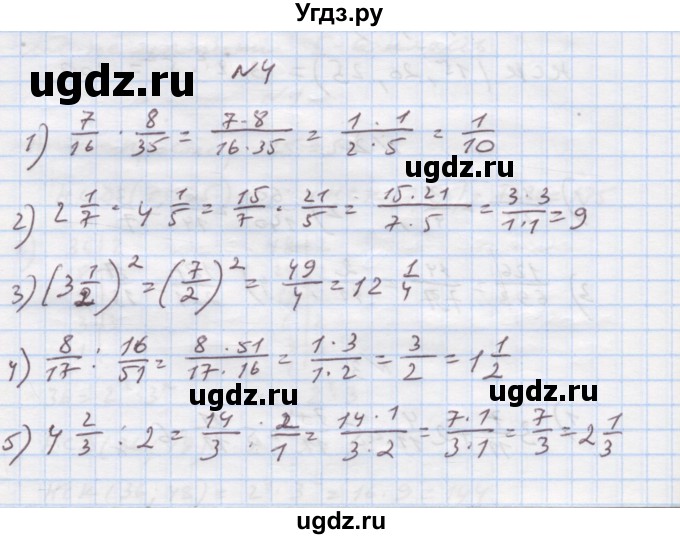 Угдз.ру
№4
ugdz.ru
1) 7/16 · 8/35 = 7·8/16·35 = 1·1/2·5 = 1/10
ugdz.ru
2) 2 1/7 · 4 1/5 = 15/7 · 21/5 = 15·21/7·5 = 3·3/1·1 = 9
3) (3 1/2)² = (7/2)² = 49/4 = 12 1/4
4) 8/17 : 16/51 = 8·51/17·16 = 1·3/1·2 = 3/2 = 1 1/2
ugdz.ru
ugdz.ru
5) 4 2/3 : 2 = 14/3 : 2/1 = 14·1/3·2 = 7·1/3·1 = 7/3 = 2 1/3
ugdz.ru
ugdz.ru